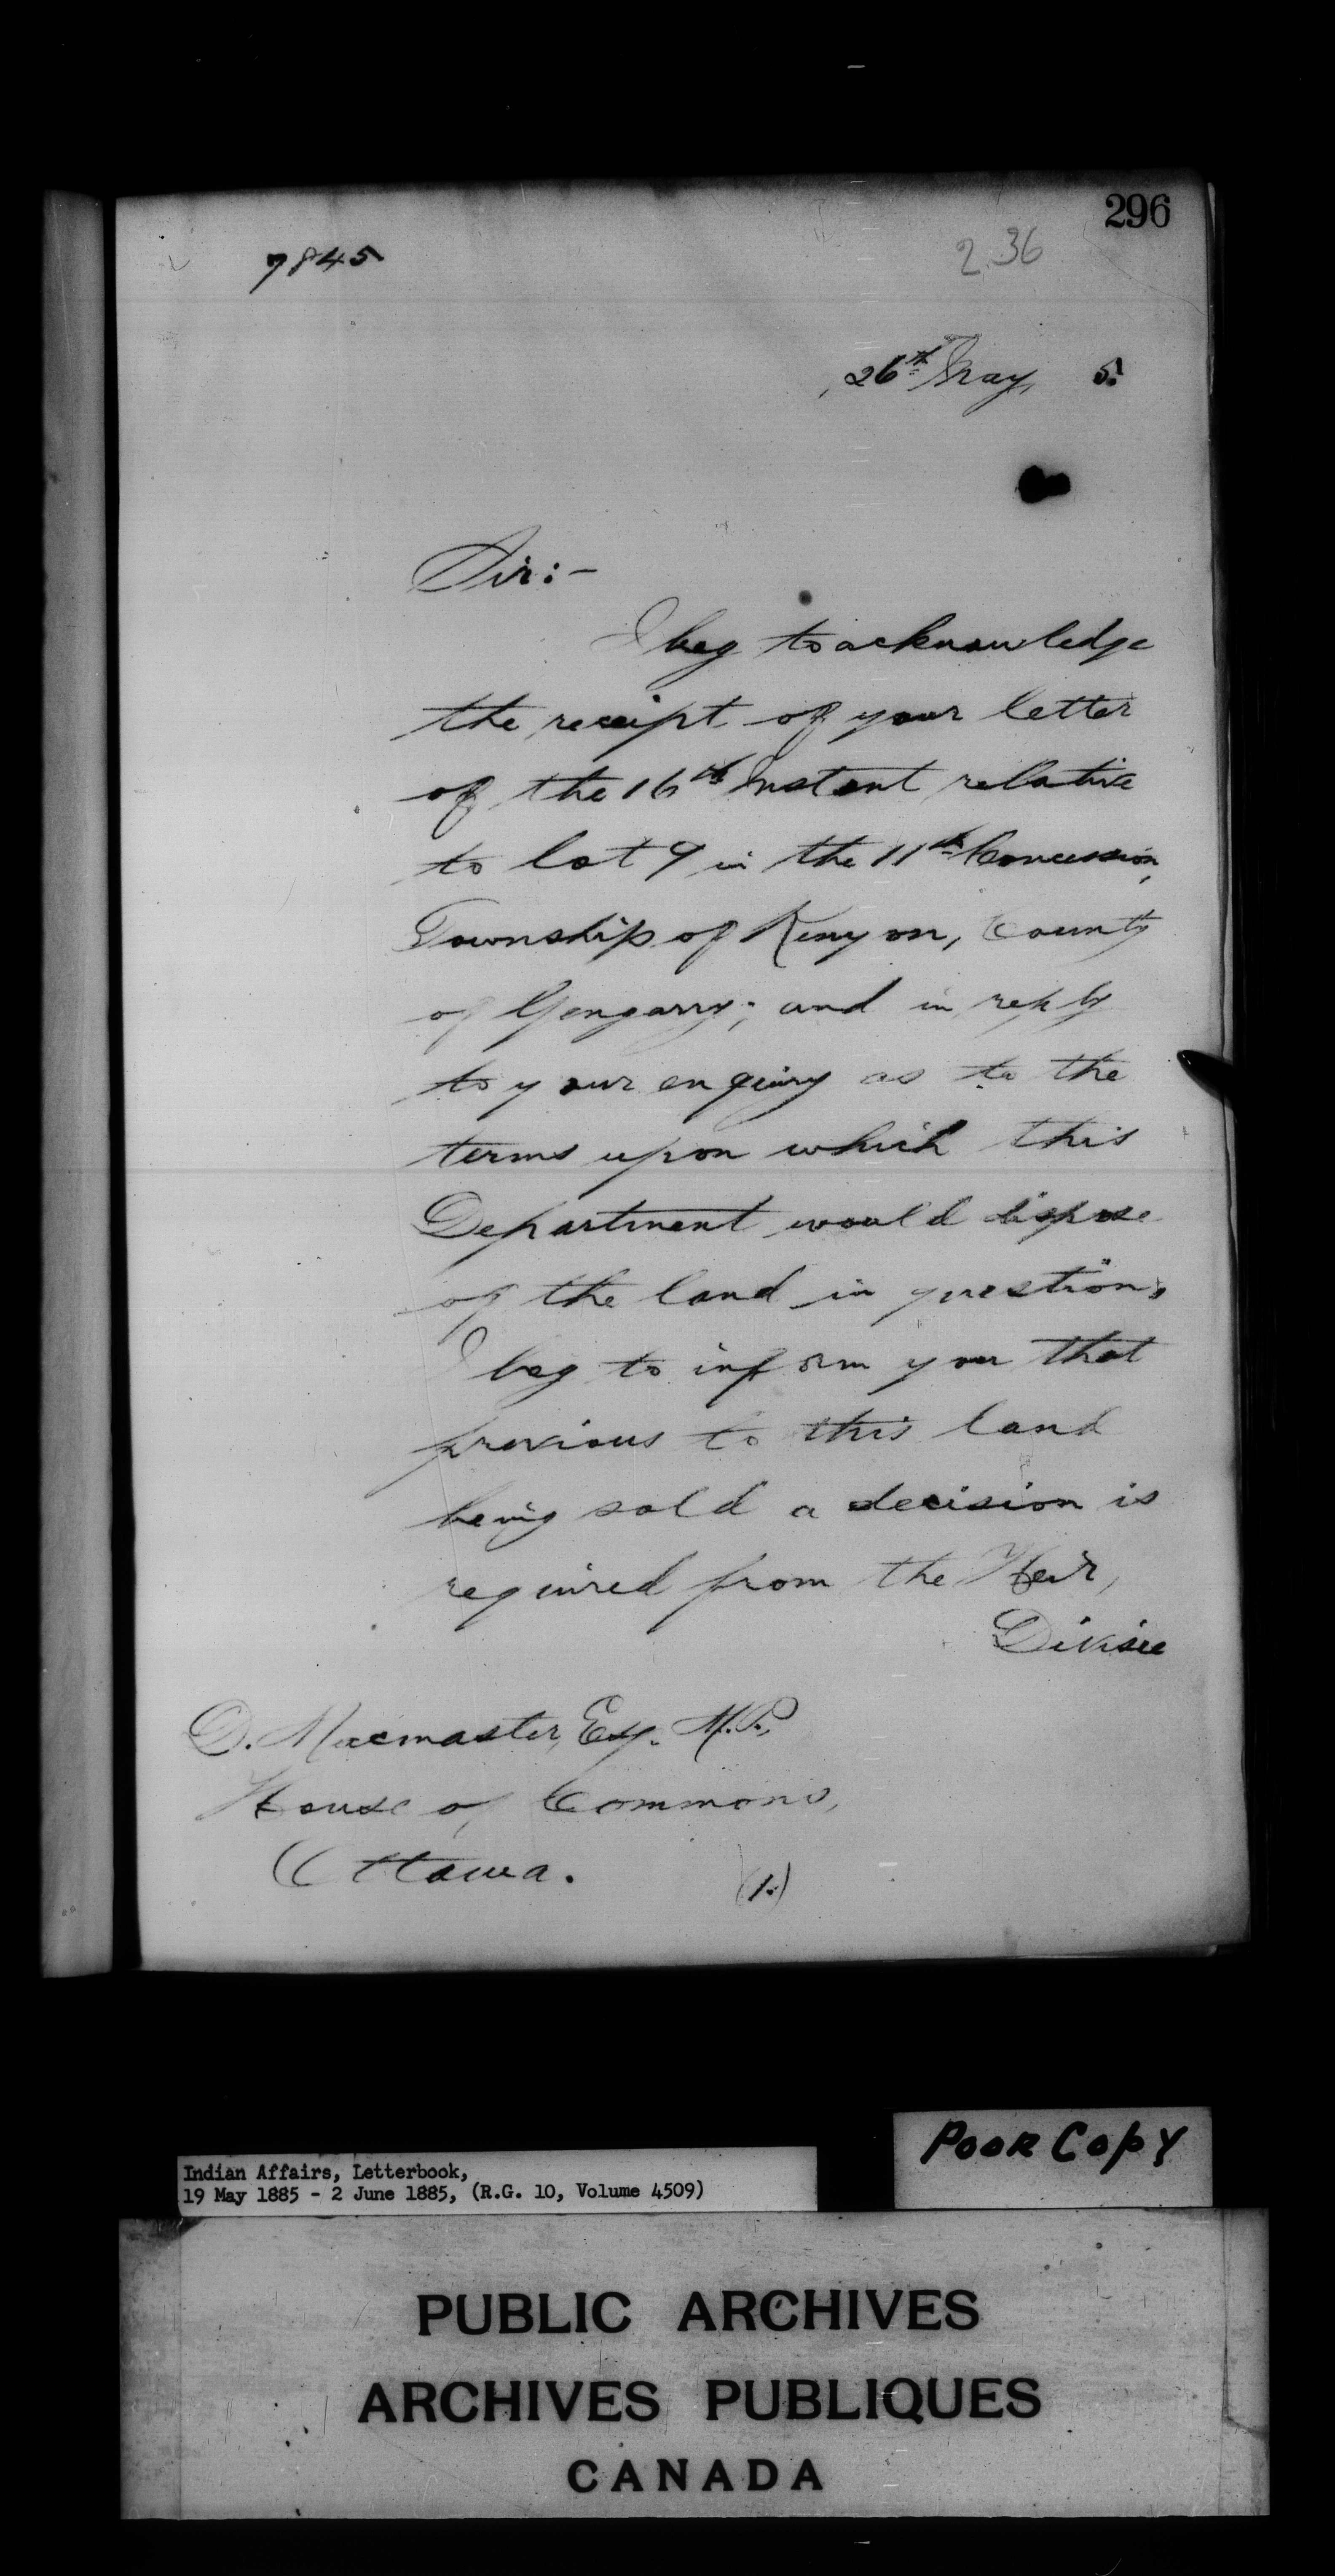 296
7845
2.36
26th May, 5.
Sir:-
I beg to acknowledge
the receipt of your letter
of the 16th Instant relative
to lot 9 in the 11th Concession,
Township of Kenyon, County
of Glengarry; and in reply
to your enquiry as to the
terms upon which this
Department would dispose
of the land in question,
I beg to inform you that
previous to this land
being sold a decision is
required from the Heir,
Divisee
D. Macmaster, Esq. M.P.,
House of Commons,
Ottawa.
(1.)
POOR COPY
Indian Affairs, Letterbook,
19 May 1885 - 2 June 1885, (R.G. 10, Volume 4509)
PUBLIC ARCHIVES
ARCHIVES PUBLIQUES
CANADA